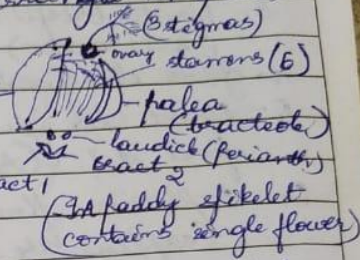 (3 stigmas)
ovary
stamens (6)
palea
(bracteole)
laudick (perianth)
bract 2
act 1
(In paddy spikelet
contains single flower)